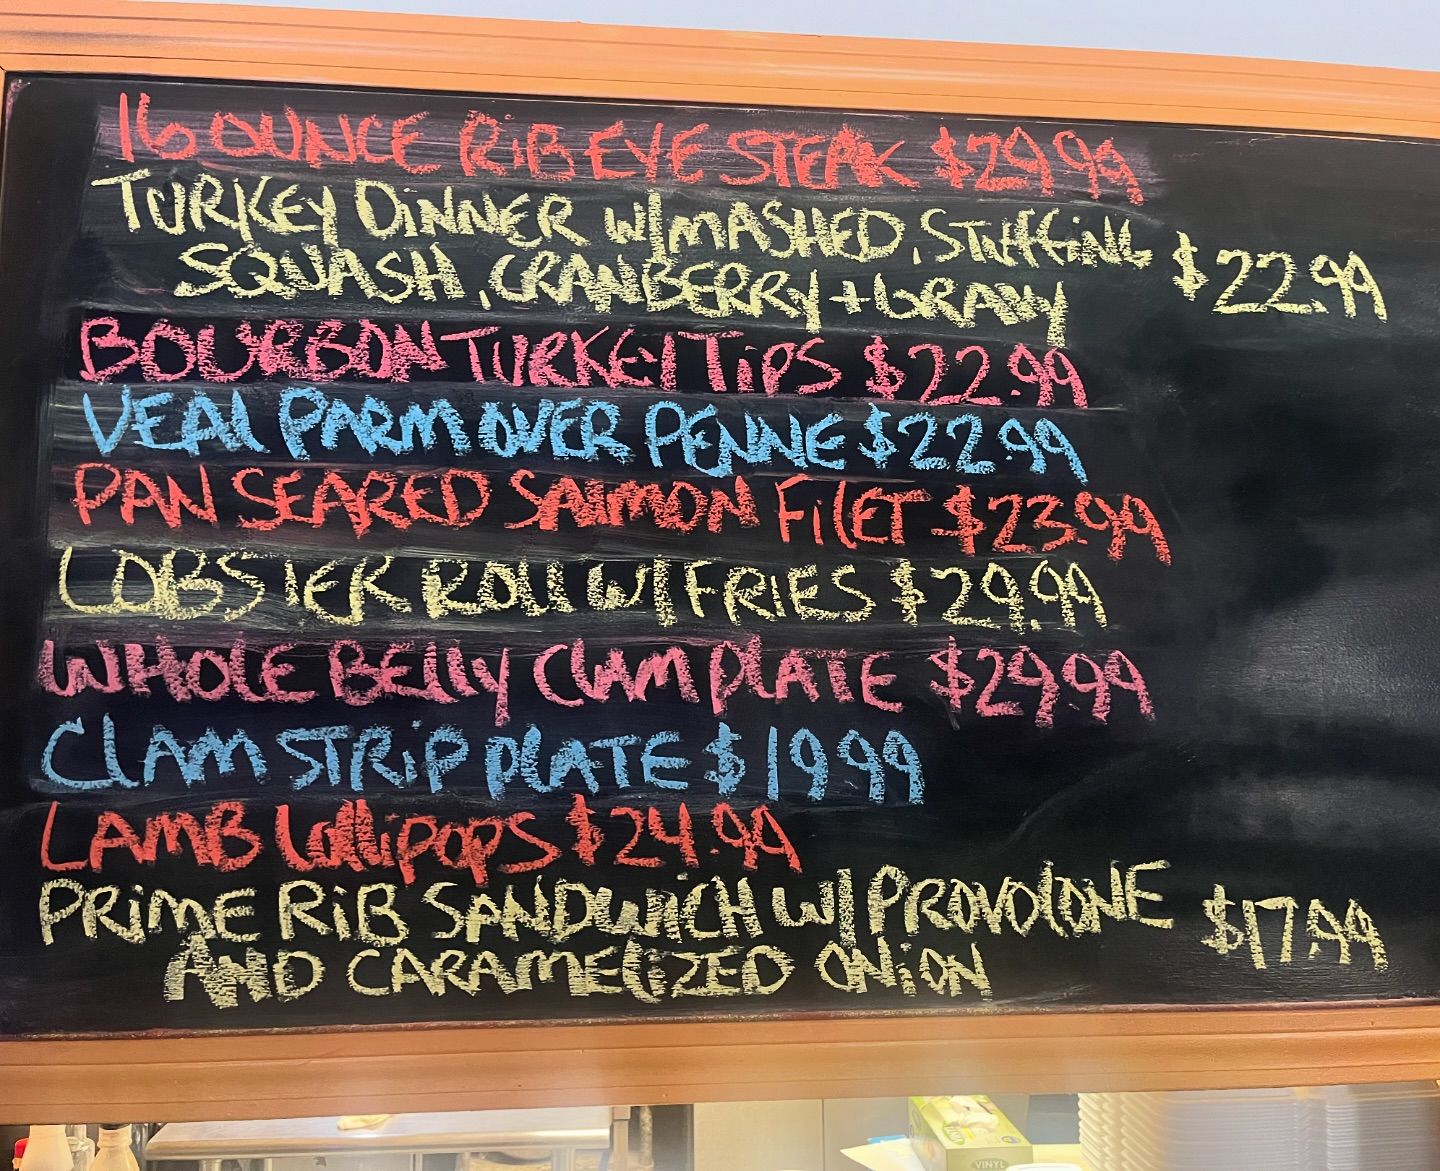 16 OUNCE RIB EYE STEAK $29.99
TURKEY DINNER W/MASHED, STUFFING
SQUASH, CRANBERRY + GRAVY $22.99
BOURBON TURKEY TIPS $22.99
VEAL PARM OVER PENNE $22.99
PAN SEARED SALMON FILET $23.99
LOBSTER ROLL W/ FRIES $29.99
WHOLE BELLY CLAM PLATE $29.99
CLAM STRIP PLATE $19.99
LAMB LOLLIPOPS $24.99
PRIME RIB SANDWICH W/ PROVOLONE
AND CARAMELIZED ONION $17.99
VINYL